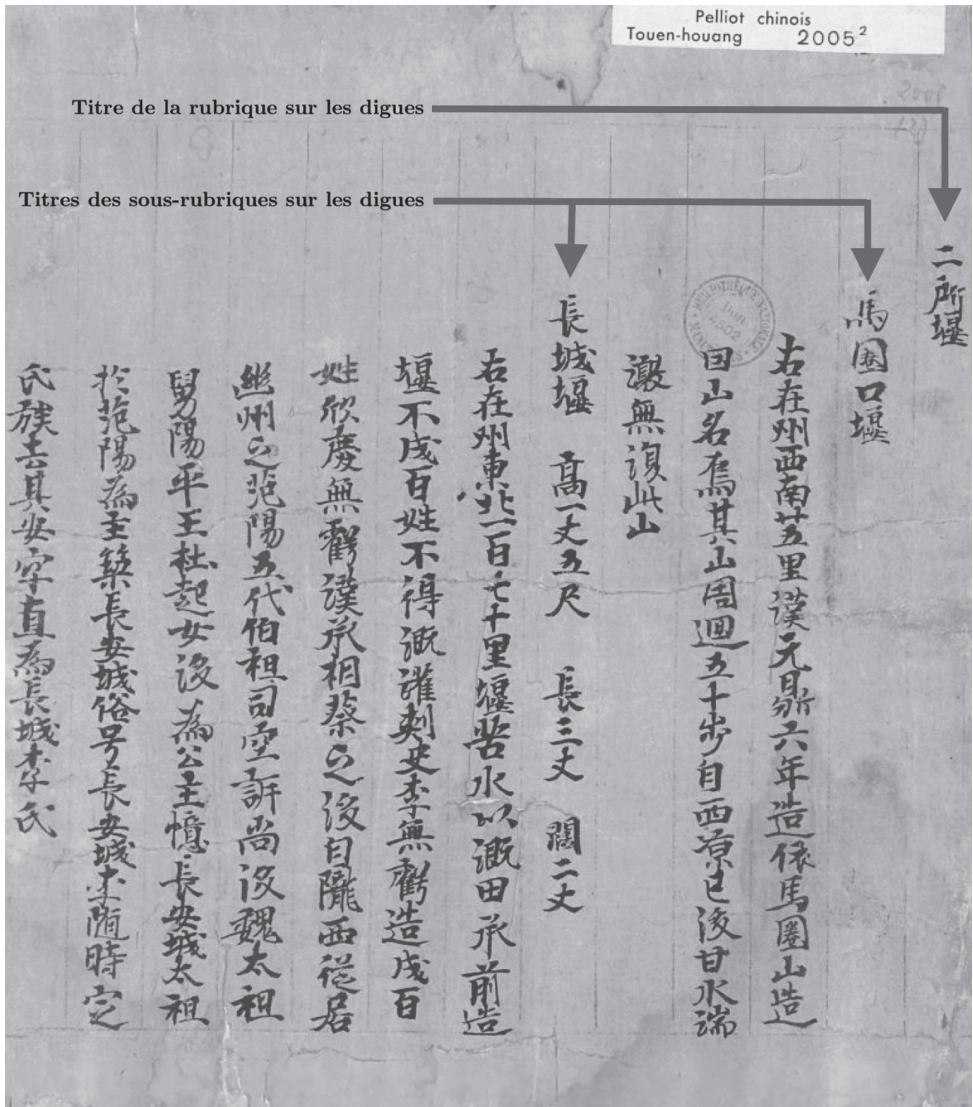 Pelliot chinois
Touen-houang 2005²
Titre de la rubrique sur les digues
Titres des sous-rubriques sur les digues
二所堰
馬圈口堰
右在州西南廿五里漢元鼎六年造依馬圈山造
因山名焉其山周迴五十步自西涼已後甘水湍
激無復此山
長城堰 高一丈五尺 長三丈 闊二丈
右在州東北一百七十里堰苦水以溉田承前造
堰不成百姓不得溉灌刺史李無虧造成百
姓欣慶無虧漢承相蔡之後自隴西徙居
幽州之范陽五代伯祖司空訢尚後魏太祖
舅陽平王杜超女後為公主憶長安城太祖
於范陽為主築長安城俗号長安城李隨時定
氏族去其安字直為長城李氏
BIBLIOTHÈQUE NATIONALE
Don
4502